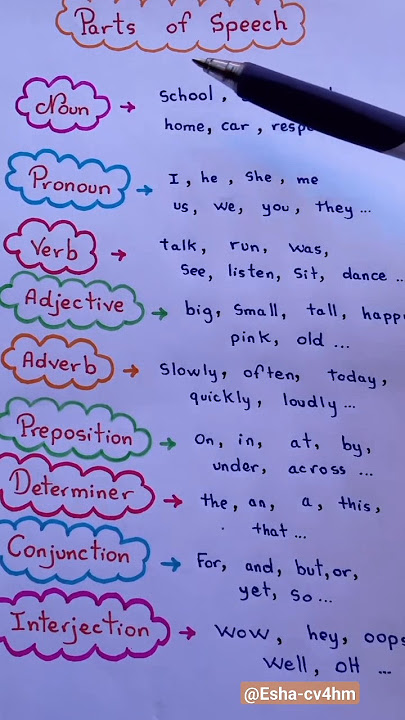 Parts of Speech
Noun → school,
home, car,
Pronoun → I, he, she, me
us, we, you, they...
Verb → talk, run, was,
see, listen, sit, dance ..
Adjective → big, small, tall, happ
pink, old ...
Adverb → slowly, often, today,
quickly, loudly...
Preposition → on, in, at, by,
under, across ...
Determiner → the, an, a, this,
that ...
Conjunction → For, and, but, or,
yet, so ...
Interjection → wow, hey, oops
well, oH ...
@Esha-cv4hm